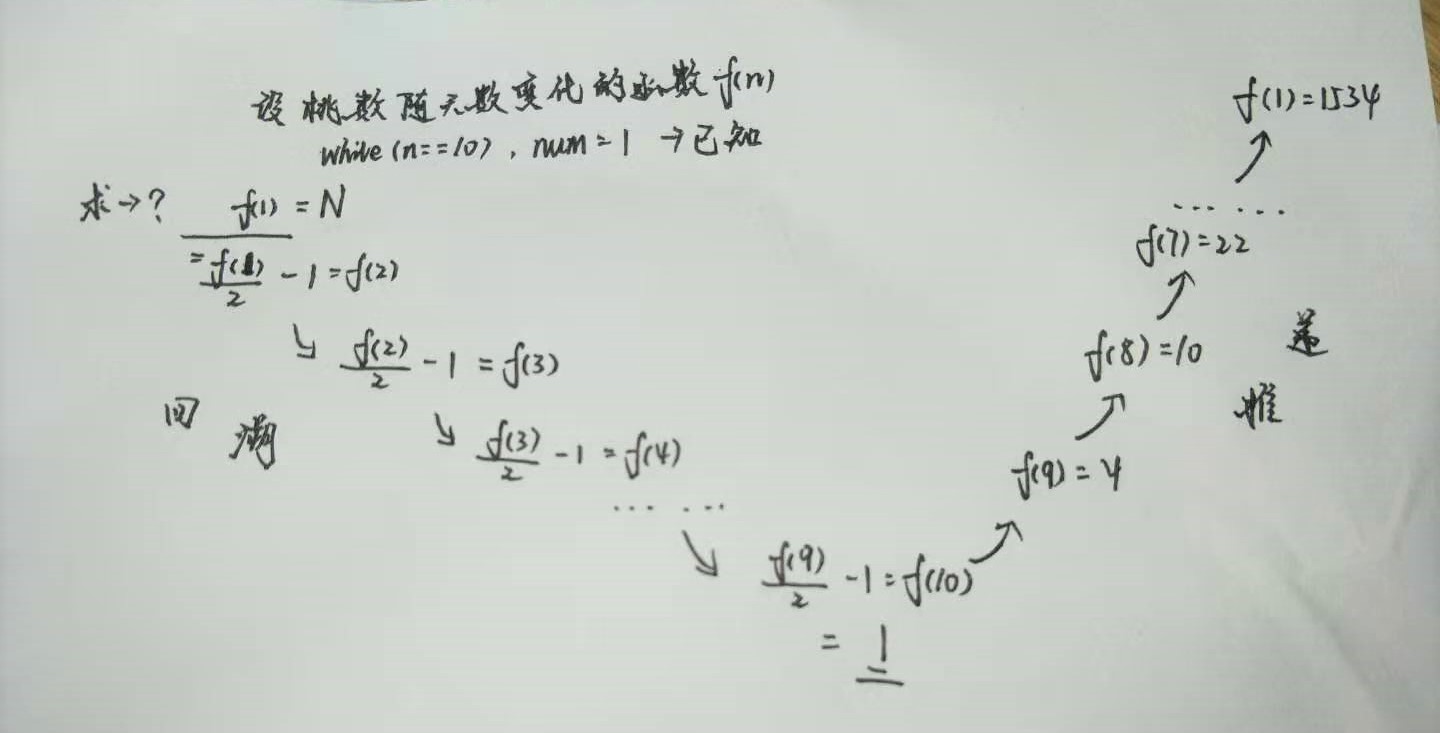 设桃数随天数变化的函数f(n)
while(n==10), num=1 →已知
求→? f(1)=N
=f(1)/2 -1=f(2)
↘ f(2)/2 -1=f(3)
↘ f(3)/2 -1=f(4)
…… 
↘ f(9)/2 -1=f(10)
= 1
回溯
f(9)=4
↗
f(8)=10
↗
f(7)=22
↗
……
↗
f(1)=1534
递推